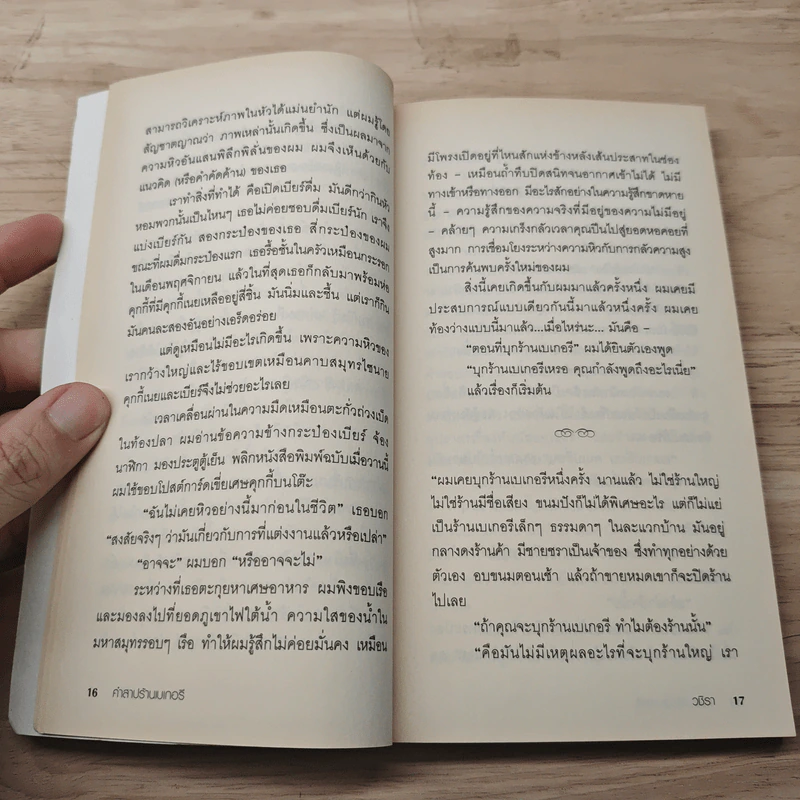 สามารถวิเคราะห์ภาพในหัวได้แม่นยำนัก แต่ผมรู้โดย
สัญชาตญาณว่า ภาพเหล่านั้นเกิดขึ้น ซึ่งเป็นผลมาจาก
ความหิวอันแสนพิลึกพิลั่นของผม ผมจึงเห็นด้วยกับ
แนวคิด (หรือคำคัดค้าน) ของเธอ
เราทำสิ่งที่ทำได้ คือเปิดเบียร์ดื่ม มันดีกว่ากินหัว
หอมพวกนั้นเป็นไหนๆ เธอไม่ค่อยชอบดื่มเบียร์นัก เราจึง
แบ่งเบียร์กัน สองกระป๋องของเธอ สี่กระป๋องของผม
ขณะที่ผมดื่มกระป๋องแรก เธอรื้อชั้นในครัวเหมือนกระรอก
ในเดือนพฤศจิกายน แล้วในที่สุดเธอก็กลับมาพร้อมห่อ
คุกกี้ที่มีคุกกี้เนยเหลืออยู่สี่ชิ้น มันนิ่มและชื้น แต่เราก็กิน
มันคนละสองอันอย่างเอร็ดอร่อย
แต่ดูเหมือนไม่มีอะไรเกิดขึ้น เพราะความหิวของ
เรากว้างใหญ่และไร้ขอบเขตเหมือนคาบสมุทรไซนาย
คุกกี้เนยและเบียร์จึงไม่ช่วยอะไรเลย
เวลาเคลื่อนผ่านในความมืดเหมือนตะกั่วถ่วงเบ็ด
ในท้องปลา ผมอ่านข้อความข้างกระป๋องเบียร์ จ้อง
นาฬิกา มองประตูตู้เย็น พลิกหนังสือพิมพ์ฉบับเมื่อวานนี้
ผมใช้ขอบโปสต์การ์ดเขี่ยเศษคุกกี้บนโต๊ะ
“ฉันไม่เคยหิวอย่างนี้มาก่อนในชีวิต” เธอบอก
“สงสัยจริงๆ ว่ามันเกี่ยวกับการที่แต่งงานแล้วหรือเปล่า”
“อาจจะ” ผมบอก “หรืออาจจะไม่”
ระหว่างที่เธอตะกุยหาเศษอาหาร ผมพิงขอบเรือ
และมองลงไปที่ยอดภูเขาไฟใต้น้ำ ความใสของน้ำใน
มหาสมุทรรอบๆ เรือ ทำให้ผมรู้สึกไม่ค่อยมั่นคง เหมือน
16 คำสาปร้านเบเกอรี
มีโพรงเปิดอยู่ที่ไหนสักแห่งข้างหลังเส้นประสาทในช่อง
ท้อง – เหมือนถ้ำที่บปิดสนิทจนอากาศเข้าไม่ได้ ไม่มี
ทางเข้าหรือทางออก มีอะไรสักอย่างในความรู้สึกขาดหาย
นี้ – ความรู้สึกของความจริงที่มีอยู่ของความไม่มีอยู่
– คล้ายๆ ความเกร็งกลัวเวลาคุณปีนไปสู่ยอดหอคอยที่
สูงมาก การเชื่อมโยงระหว่างความหิวกับการกลัวความสูง
เป็นการค้นพบครั้งใหม่ของผม
สิ่งนี้เคยเกิดขึ้นกับผมมาแล้วครั้งหนึ่ง ผมเคยมี
ประสบการณ์แบบเดียวกันนี้มาแล้วครั้งหนึ่ง ผมเคย
ท้องว่างแบบนี้มาแล้ว...เมื่อไหร่นะ... มันคือ –
“ตอนที่บุกร้านเบเกอรี” ผมได้ยินตัวเองพูด
“บุกร้านเบเกอรีเหรอ คุณกำลังพูดถึงอะไรเนี่ย”
แล้วเรื่องก็เริ่มต้น
“ผมเคยบุกร้านเบเกอรีหนึ่งครั้ง นานแล้ว ไม่ใช่ร้านใหญ่
ไม่ใช่ร้านมีชื่อเสียง ขนมปังก็ไม่ได้พิเศษอะไร แต่ก็ไม่แย่
เป็นร้านเบเกอรีเล็กๆ ธรรมดาๆ ในละแวกบ้าน มันอยู่
กลางดงร้านค้า มีชายชราเป็นเจ้าของ ซึ่งทำทุกอย่างด้วย
ตัวเอง อบขนมตอนเช้า แล้วถ้าขายหมดเขาก็จะปิดร้าน
ไปเลย
“ถ้าคุณจะบุกร้านเบเกอรี ทำไมต้องร้านนั้น”
“คือมันไม่มีเหตุผลอะไรที่จะบุกร้านใหญ่ เรา
วชิรา 17